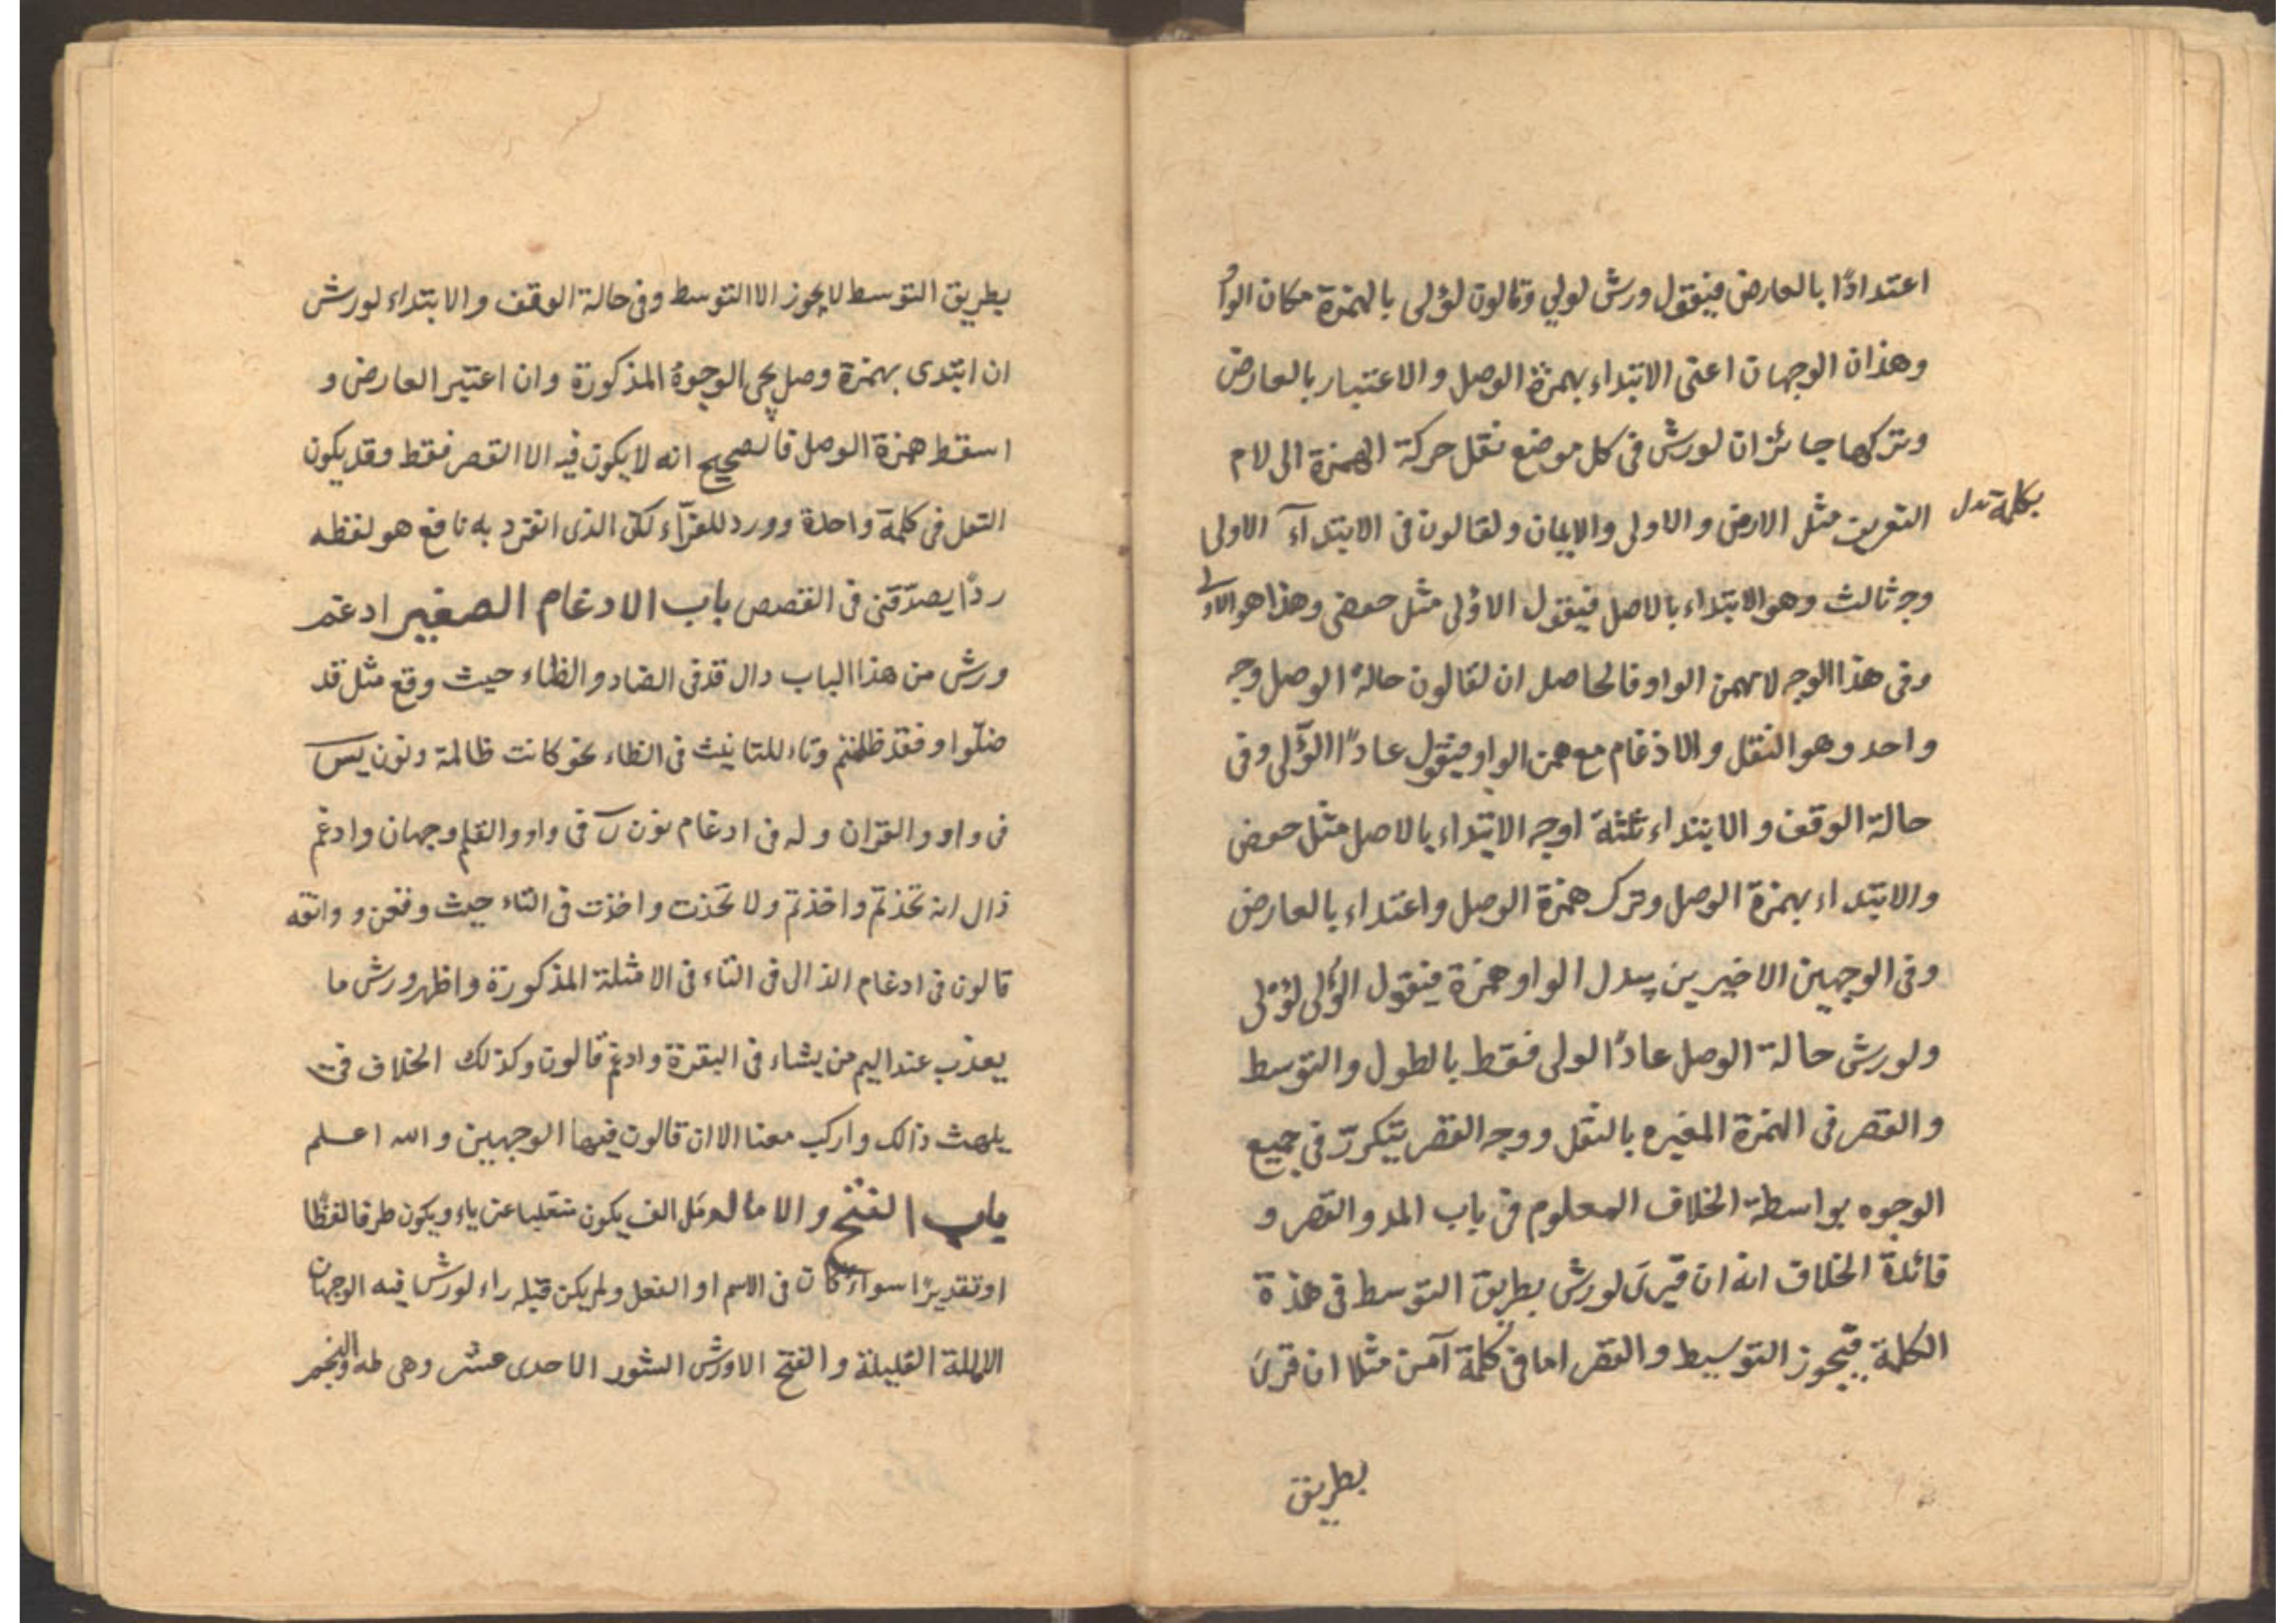 اعتدادًا بالعارض فيقول ورش لولي وقالون لؤلى بالهمزة مكان الواو
وهذان الوجهان اعنى الابتداء بهمزة الوصل والاعتبار بالعارض
وتركها جائزان لورش فى كل موضع نقل حركة الهمزة الى لام
بكلمة تدل
التعريف مثل الارض والاولى والايمان ولقالون فى الابتدآء الاولى
وجه ثالث وهو الابتداء بالاصل فيقول الاولى مثل حفص وهذا هو الاولى
وفى هذا الوجه لا يهمز الواو فالحاصل ان لقالون حالة الوصل وجه
واحد وهو النقل والادغام مع همز الواو فيقول عادًا الؤلى وفى
حالة الوقف والابتداء ثلثة اوجه الابتداء بالاصل مثل حفص
والابتداء بهمزة الوصل وترك همزة الوصل واعتداء بالعارض
وفى الوجهين الاخيرين يبدل الواو همزة فيقول الؤلى لؤلى
ولورش حالة الوصل عادًا لولى فقط بالطول والتوسط
والقصر فى الهمزة المغيره بالنقل ووجه القصر يتكرّر فى جميع
الوجوه بواسطة الخلاف المعلوم فى باب المد والقصر و
فائدة الخلاف انه ان قرئ لورش بطريق التوسط فى هذة
الكلمة فيجوز التوسيط والقصر اما فى كلمة آمن مثلا ان قرئ
بطريق
بطريق التوسط لا يجوز الا التوسط وفى حالة الوقف والابتداء لورش
ان ابتدى بهمزة وصل يجئ الوجوه المذكورة وان اعتبر العارض و
اسقط همزة الوصل فالصحيح انه لا يكون فيه الا القصر فقط وقد يكون
النقل فى كلمة واحدة وورد للقرّاء لكن الذى انفرد به نافع هو لفظه
ردًا يصدّقنى فى القصص باب الادغام الصغير ادغم
ورش من هذا الباب دال قد فى الضاد والظاء حيث وقع مثل قد
ضلّوا وفقد ظلمتم وتاء للتانيث فى الظاء نحو كانت ظالمة ونون يس
فى واو والقران وله فى ادغام نون ن فى واو والقلم وجهان وادغم
ذال اتخذتم واخذتم ولاتخذت واخذت فى التاء حيث وقعن ووافقه
قالون فى ادغام الذال فى التاء فى الامثلة المذكورة واظهر ورش ما
يعذب عند اليم من يشاء فى البقرة وادغم قالون وكذلك الخلاف فى
يلهث ذالك واركب معنا الا ان قالون فيهما الوجهين والله اعلم
باب الفتح والاماله كل الف يكون منقلبا عن ياء ويكون طرفا لفظًا
او تقديرًا سواء كان فى الاسم او الفعل ولم يكن قبله راء لورش فيه الوجهان
الاملة القليلة والفتح الا ورش السور الاحدى عشر وهى طه والنجم